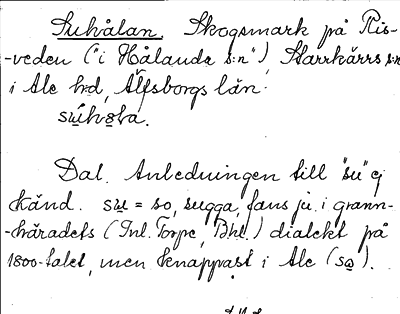 Suhålan. Skogsmark på Ris-
-veden ("i Hålanda s:n"), Starrkärrs s:n
i Ale hrd, Älfsborgs län.
Dal. Anledningen till "su" ej
känd. su = so, sugga, fans ju i grann-
-häradets (Inl. Torpe, Bhl.) dialekt på
1800-talet, men knappast i Ale (so).